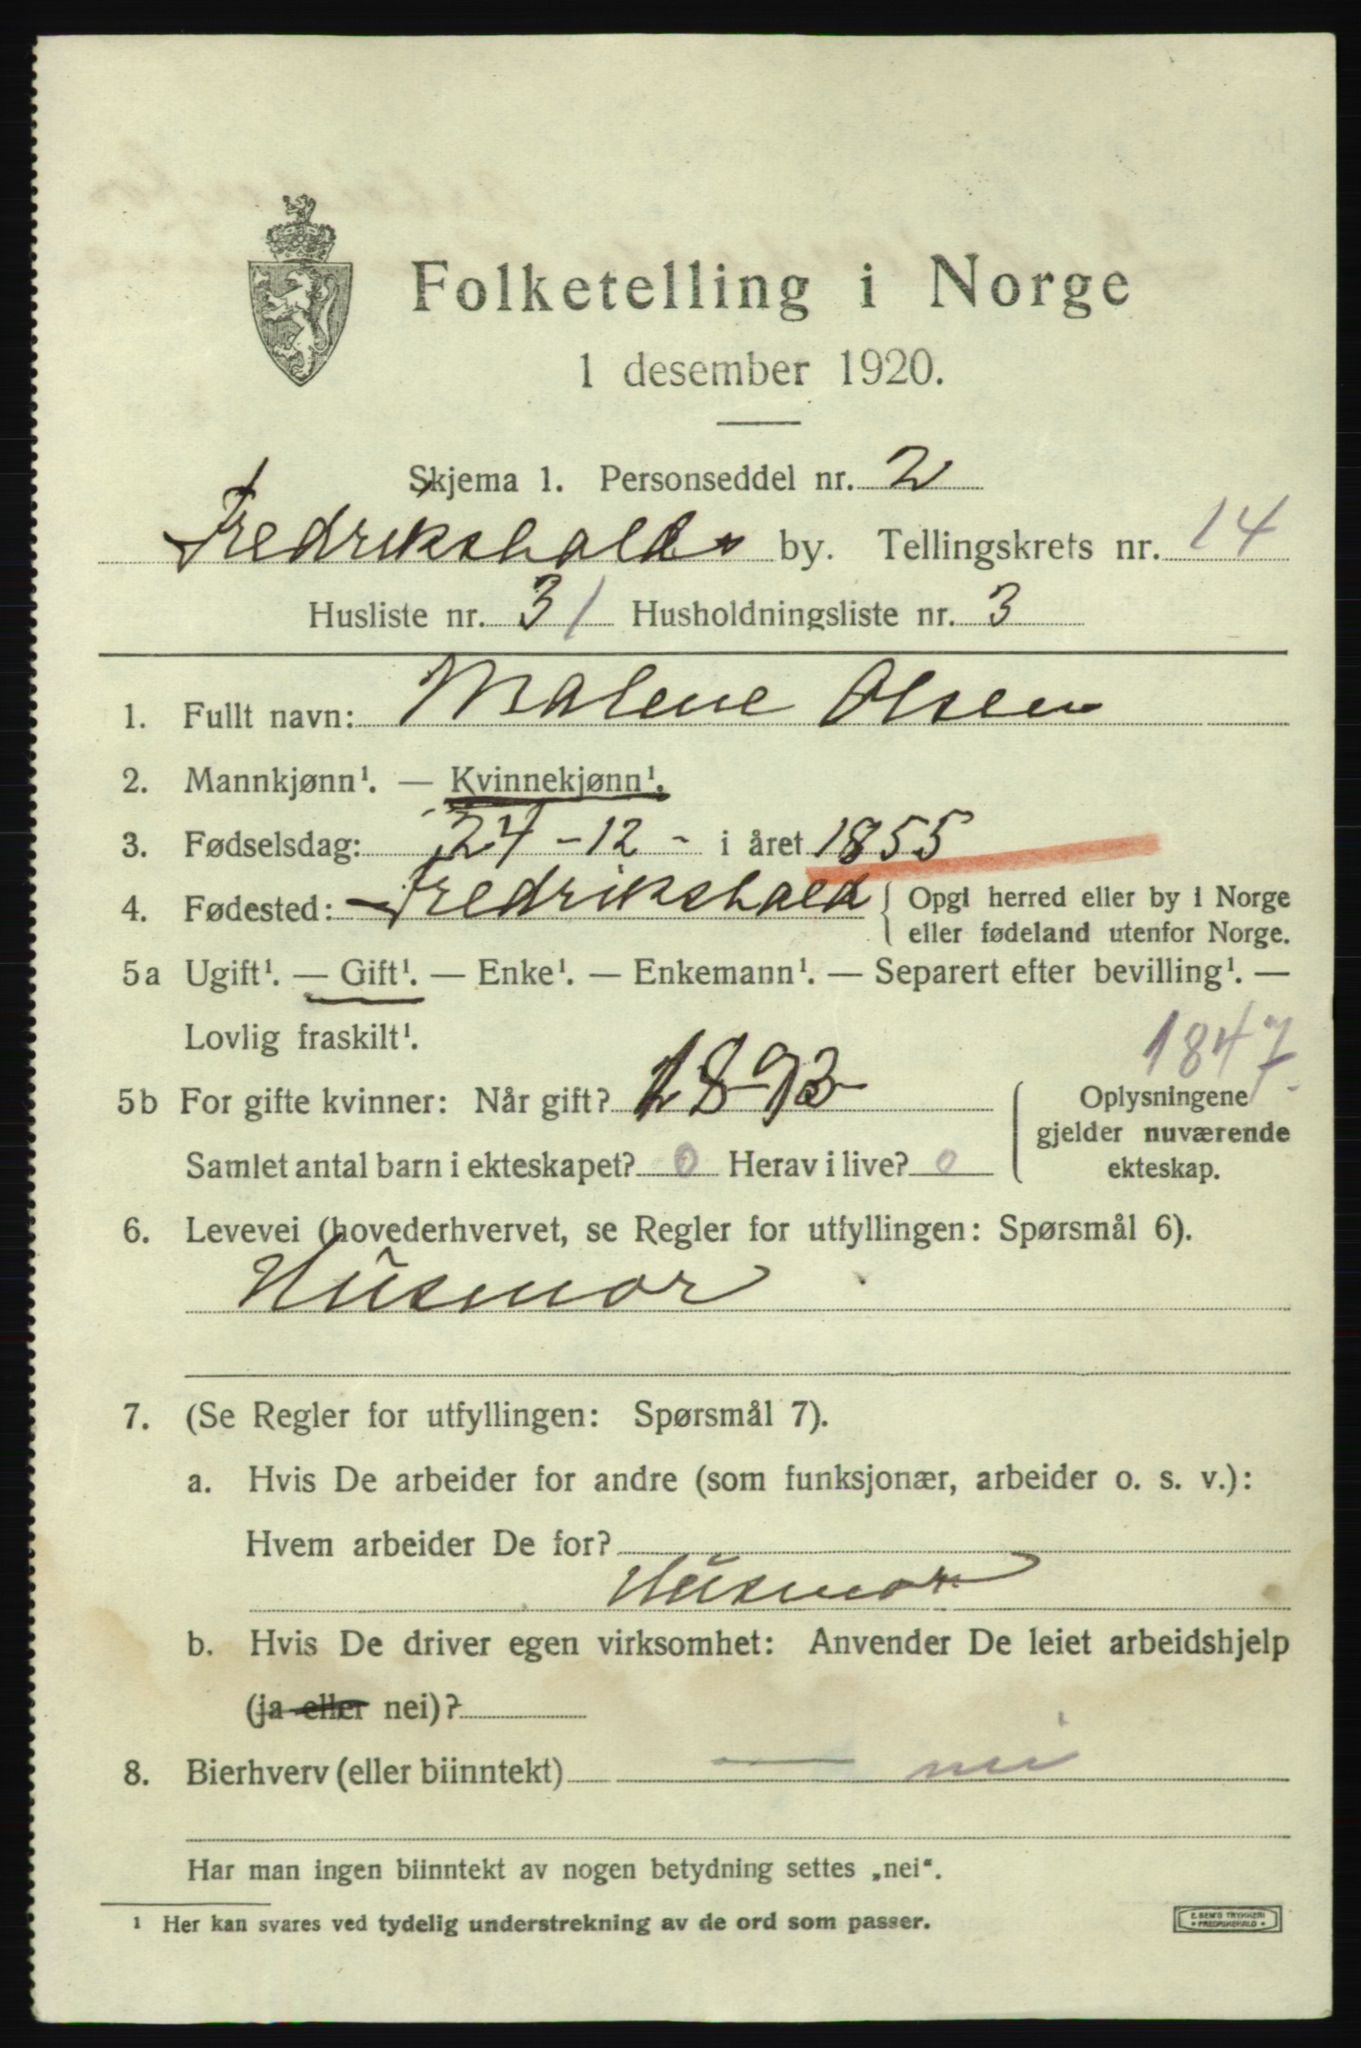 Folketelling i Norge
1 desember 1920.
Skjema 1. Personseddel nr. 2
Fredrikshald by. Tellingskrets nr. 14
Husliste nr. 31 Husholdningsliste nr. 3
1. Fullt navn: Malene Olsen
2. Mannkjønn¹. — Kvinnekjønn¹.
3. Fødselsdag: 24-12- i året 1855
4. Fødested: Fredrikshald { Opgi herred eller by i Norge
eller fødeland utenfor Norge.
5a Ugift¹. — Gift¹. — Enke¹. — Enkemann¹. — Separert efter bevilling¹. —
Lovlig fraskilt¹.
1847
5b For gifte kvinner: Når gift? 1893
Samlet antal barn i ekteskapet? 0 Herav i live? 0
Oplysningene
gjelder nuværende
ekteskap.
6. Levevei (hovederhvervet, se Regler for utfyllingen: Spørsmål 6).
Husmor
7. (Se Regler for utfyllingen: Spørsmål 7).
a. Hvis De arbeider for andre (som funksjonær, arbeider o. s. v.):
Hvem arbeider De for?
Husmor
b. Hvis De driver egen virksomhet: Anvender De leiet arbeidshjelp
(ja eller nei)?
8. Bierhverv (eller biinntekt) — nei
Har man ingen biinntekt av nogen betydning settes „nei“.
¹ Her kan svares ved tydelig understrekning av de ord som passer.
E. SEM'S TRYKKERI
• FREDRIKSHALD •